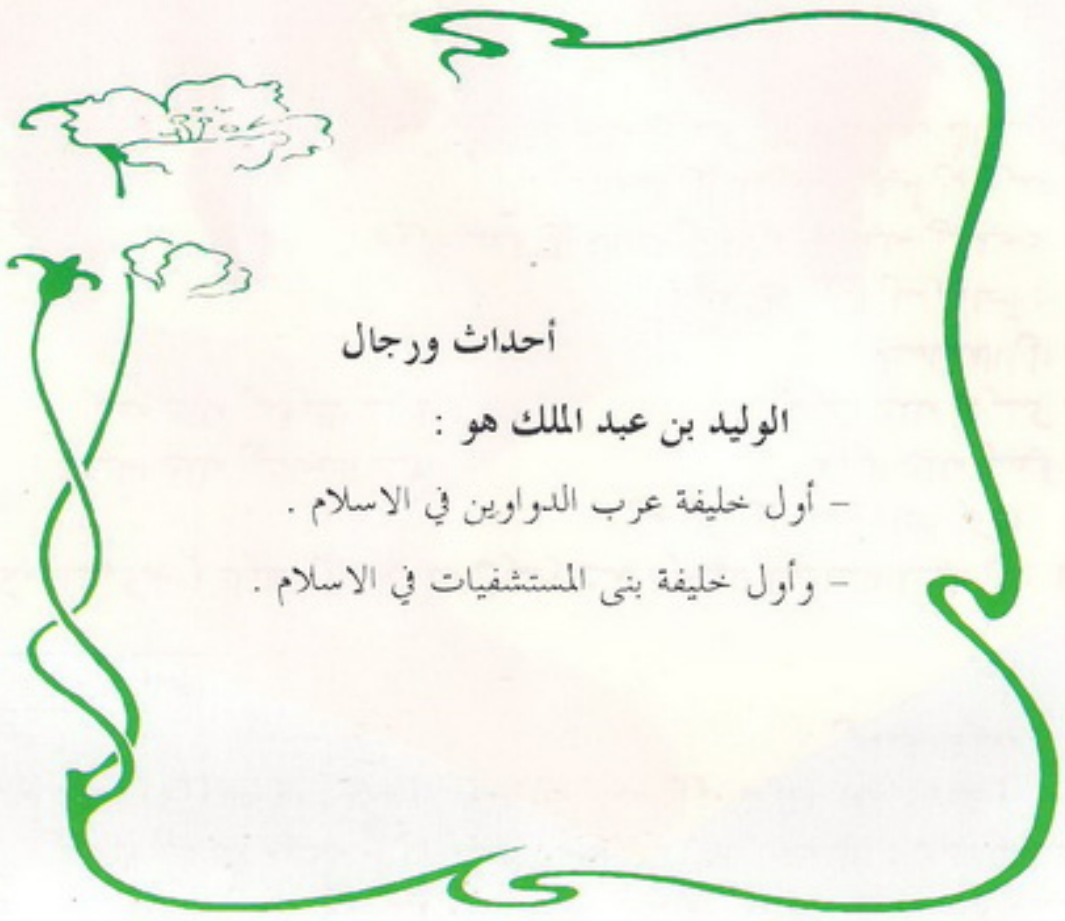 أحداث ورجال
الوليد بن عبد الملك هو :
– أول خليفة عرب الدواوين في الاسلام .
– وأول خليفة بنى المستشفيات في الاسلام .